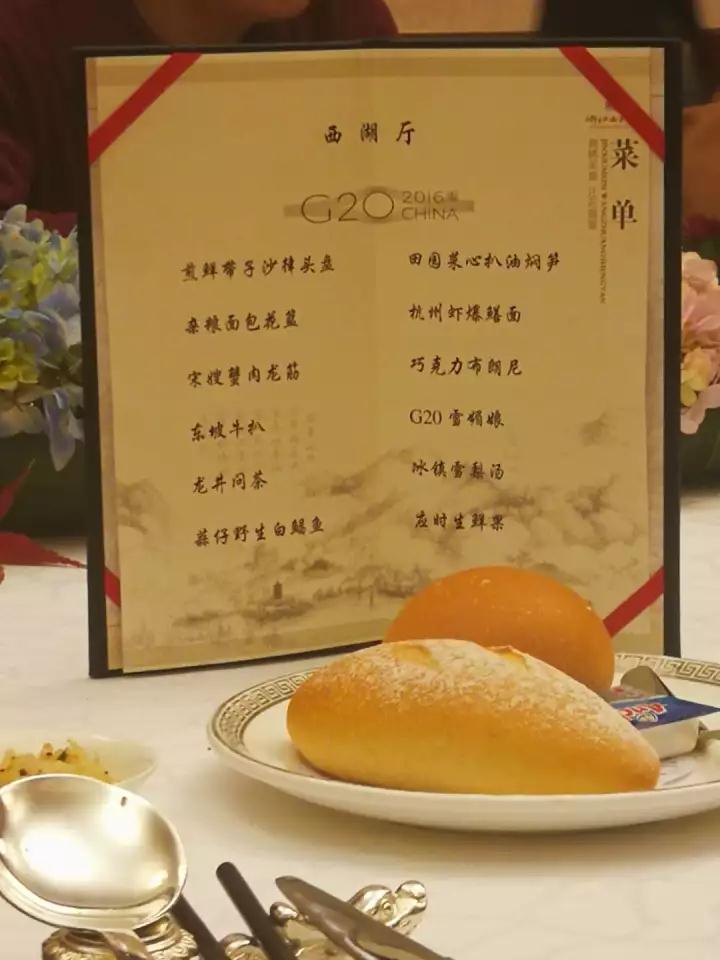 西湖厅
G20 2016年 CHINA
菜单
煎鲜带子沙律头盘
杂粮面包花篮
宋嫂蟹肉龙筋
东坡牛扒
龙井问茶
蒜仔野生白鳝鱼
田园菜心扒油焖笋
杭州虾爆鳝面
巧克力布朗尼
G20 雪媚娘
冰镇雪梨汤
应时生鲜果